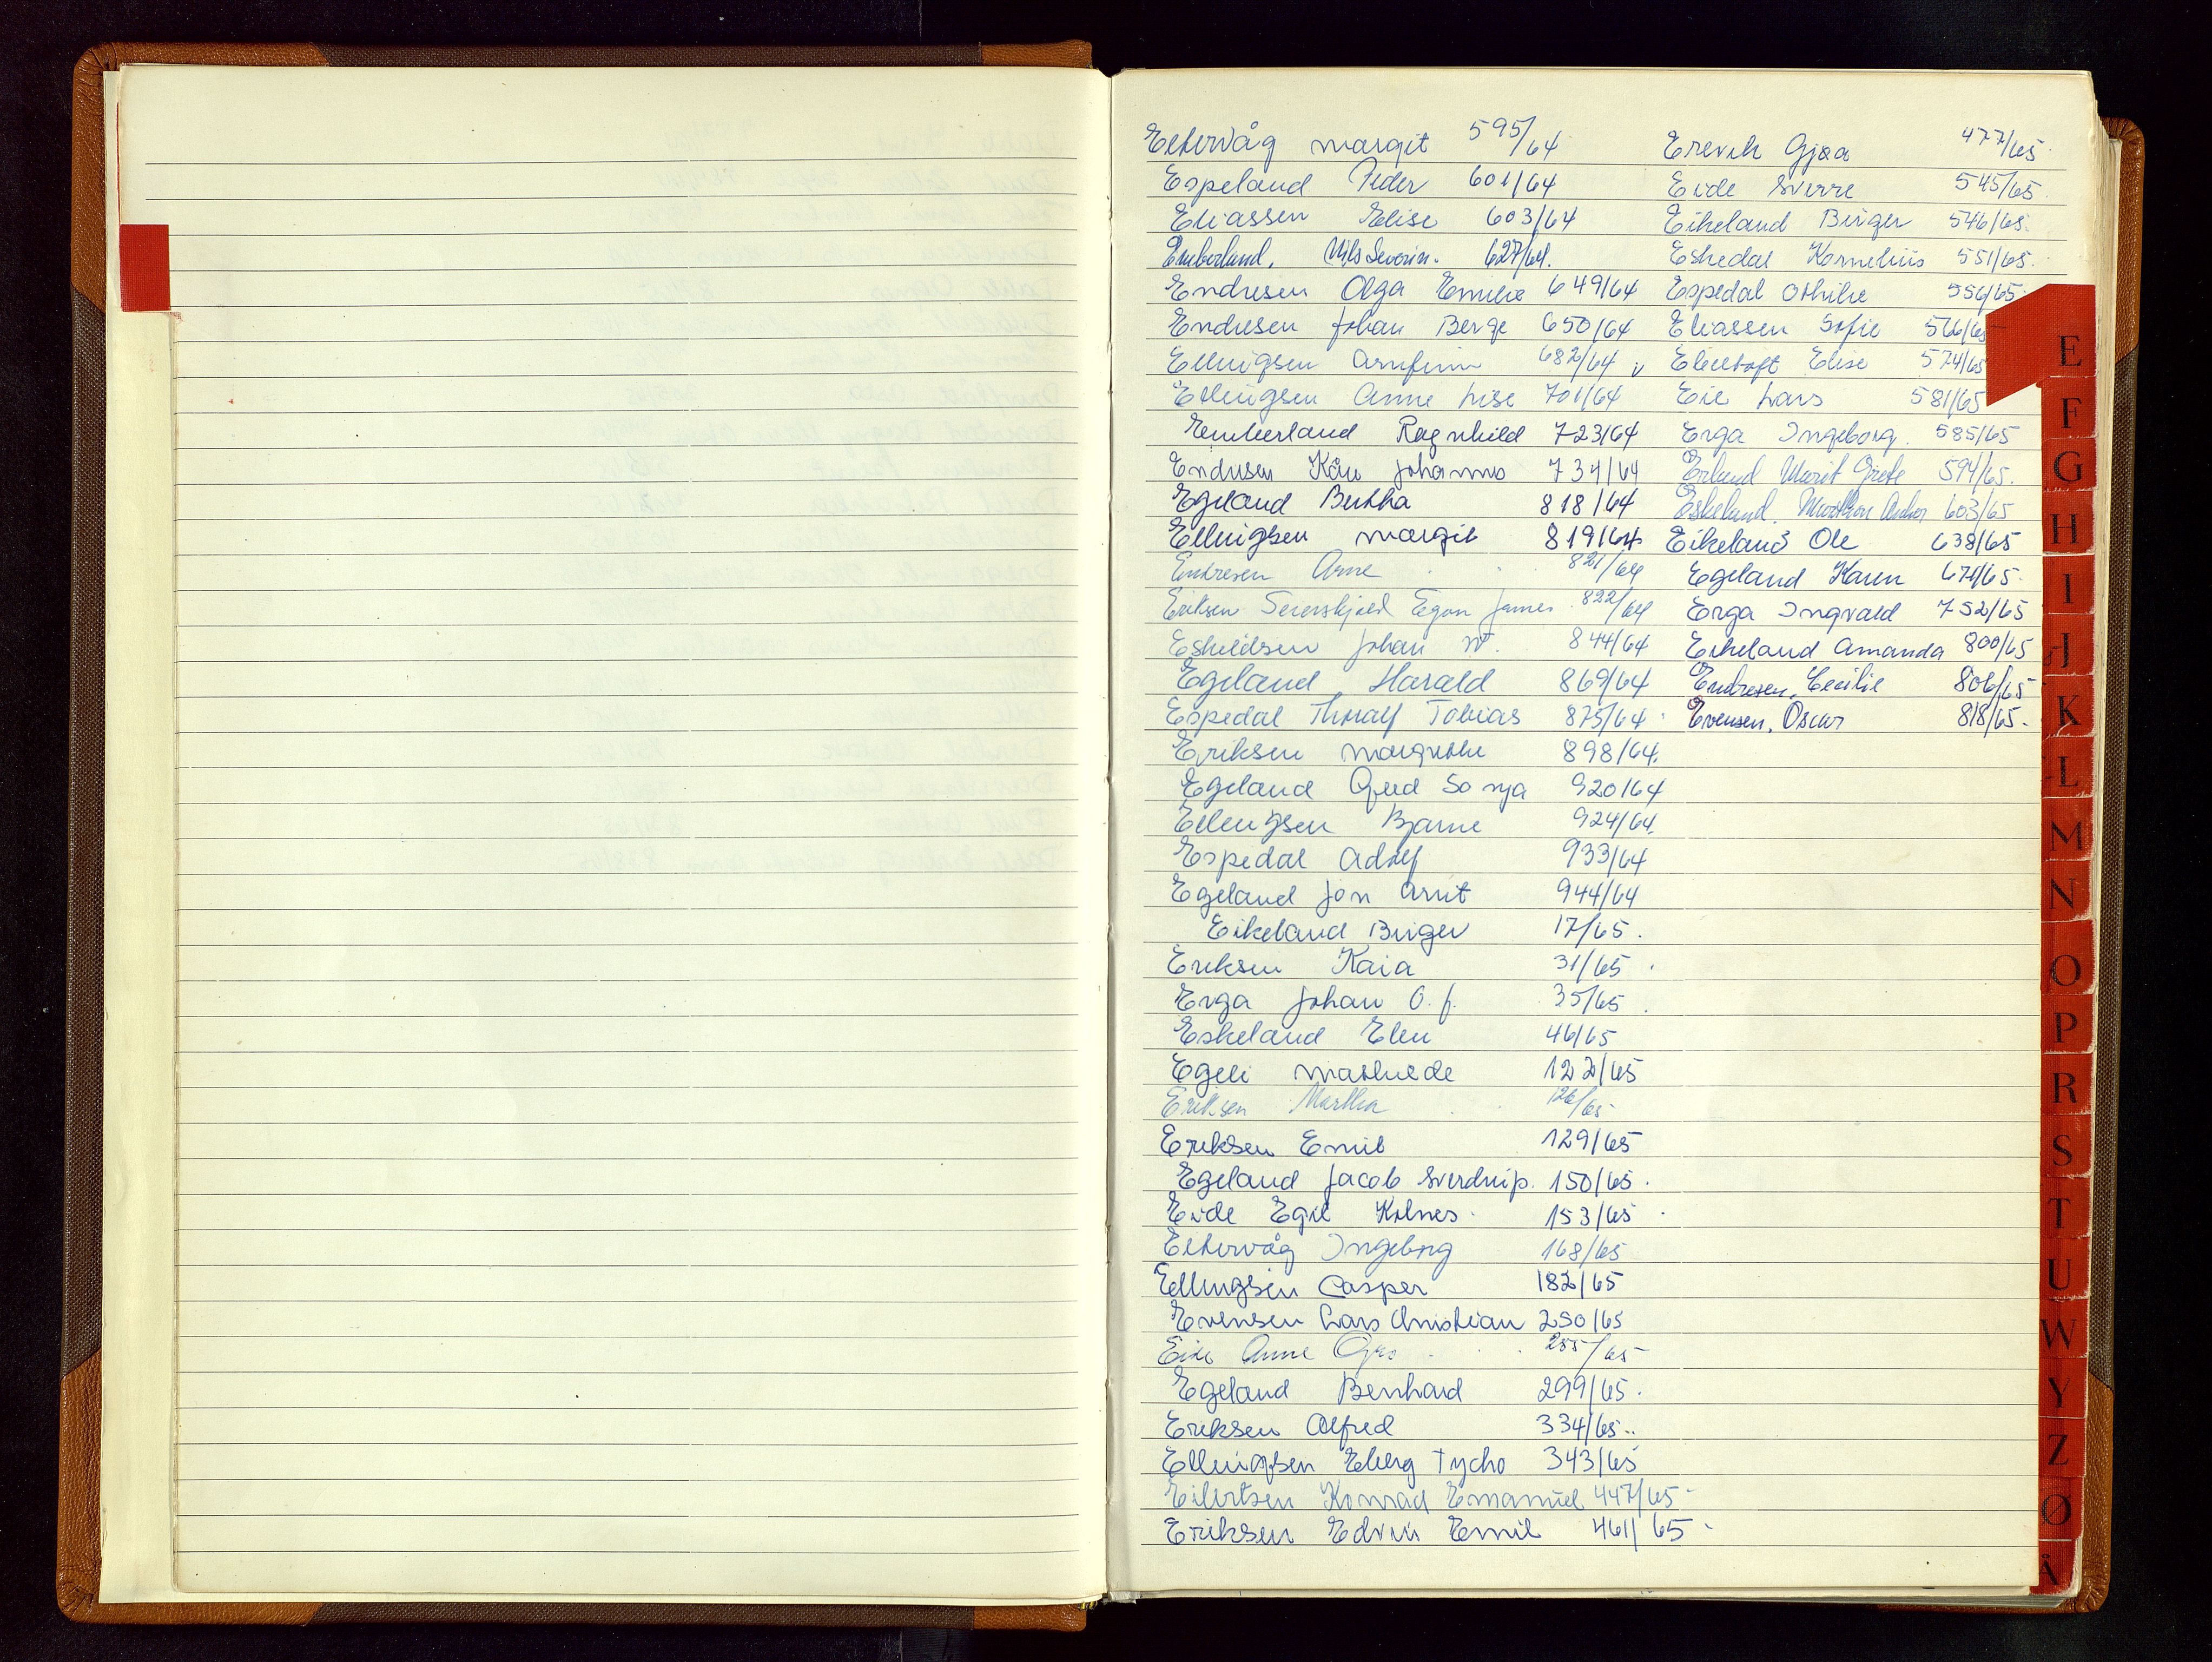 Eltervåg Margit 595/64
Espeland Peder 601/64
Eliassen Elise 603/64
Emberland, Nils Severin. 627/64.
Endresen Olga Emilie 649/64
Endresen Johan Berge 650/64
Ellingsen Arnfinn 682/64
Ellingsen Anne Lise 701/64
Emberland Ragnhild 723/64
Endresen Kåre Johannes 734/64
Egeland Bertha 818/64
Ellingsen Margit 819/64
Endresen Arne 821/64
Eriksen Egon James 822/64
Eskildsen Johan W. 844/64
Egeland Harald 869/64
Espedal Thoralf Tobias 875/64
Eriksen Margrethe 898/64.
Egeland Gerd Sonja 920/64
Ellingsen Bjarne 924/64.
Espedal Adolf 933/64
Egeland Jon Arnt 944/64
Eikeland Birger 17/65.
Eriksen Kaia 31/65.
Erga Johan O. J. 35/65.
Eskeland Elen 46/65
Egeli Mathilde 122/65
Eriksen Martha 126/65
Eriksen Emil 129/65
Egeland Jacob Sverdrup. 150/65.
Eide Egil Kolnes. 153/65.
Eltervåg Ingeborg 168/65
Ellingsen Casper 182/65
Evensen Lars Christian 250/65
Eie Anne 255/65
Egeland Bernhard 299/65.
Eriksen Alfred 334/65..
Ellingsen Eberg Tycho 343/65
Eilertsen Konrad Emanuel 447/65-
Eriksen Edvin Emil 461/65-
Erevik Gjøa 477/65.
Eide Sverre 545/65.
Eikeland Birger 546/65.
Eskedal Kornelius 551/65.
Espedal Othilie 556/65.
Eliassen Sofie 566/65
Ebeltoft Elise 574/65
Eie Lars 581/65
Erga Ingeborg. 585/65
Erland Marit Grete 594/65.
Eskeland, 603/65
Eikeland Ole 638/65
Egeland Karen 671/65.
Erga Ingvald 752/65
Eikeland Amanda 800/65
Endresen, Cecilie 806/65
Evensen, Oscar 818/65.
E
F
G
H
I
J
K
L
M
N
O
P
R
S
T
U
W
Y
Z
Ø
Å